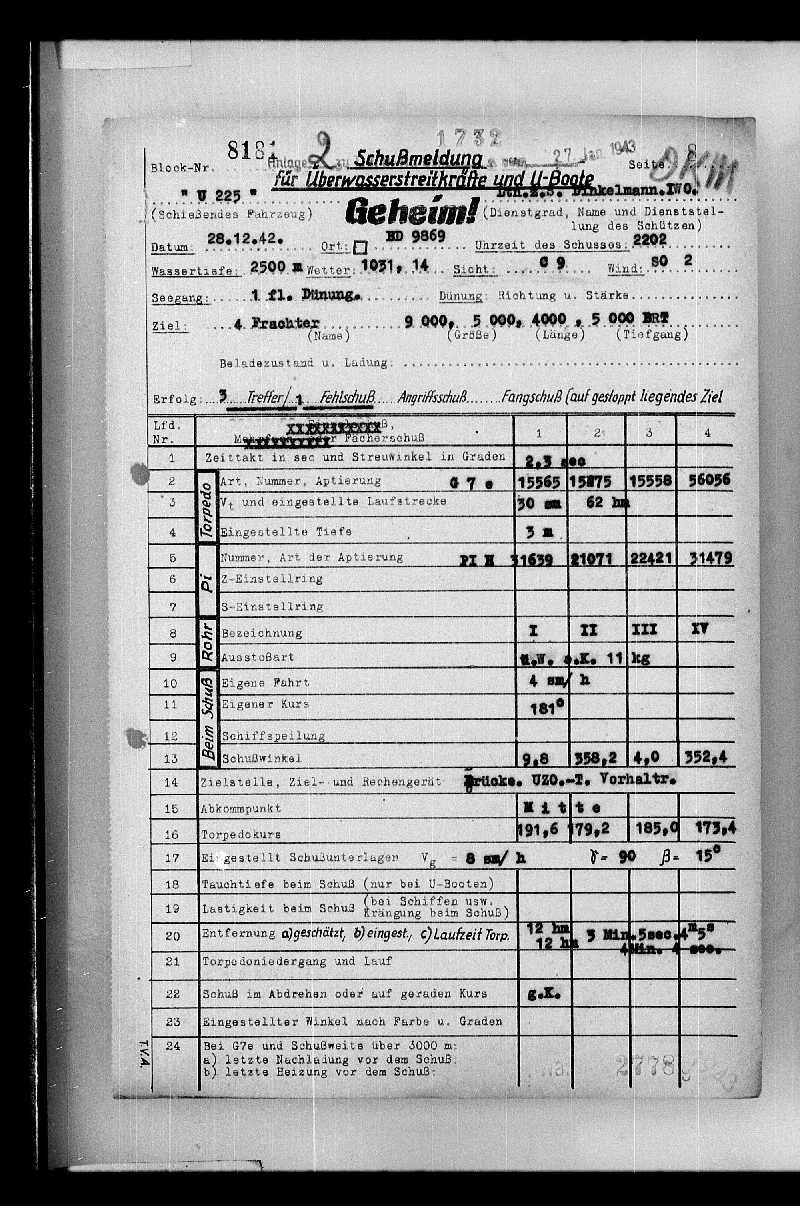 1732
Block-Nr. 8181 Anlage 2 zu Schußmeldung 27 Jan 1943 Seite 8
für Überwasserstreitkräfte und U-Boote OKM
" U 225 " Ltn.z.S. Dinkelmann.IWO.
(Schießendes Fahrzeug) Geheim! (Dienstgrad, Name und Dienststel-
lung des Schützen)
Datum: 28.12.42. Ort: BD 9869 Uhrzeit des Schusses: 2202
Wassertiefe: 2500 m Wetter: 1031, 14 Sicht: G 9 Wind: SO 2
Seegang: 1 fl. Dünung. Dünung: Richtung u. Stärke
Ziel: 4 Frachter 9 000, 5 000, 4000 , 5 000 BRT
(Name) (Größe) (Länge) (Tiefgang)
Beladezustand u. Ladung:
Erfolg: 3 Treffer/ 1 Fehlschuß Angriffsschuß Fangschuß (auf gestoppt liegendes Ziel
Lfd. Nr. Fächerschuß 1 2 3 4
1 Zeittakt in sec und Streuwinkel in Graden 2,3 sec
Torpedo
2 Art, Nummer, Aptierung G 7 e 15565 15875 15558 56056
3 Vt und eingestellte Laufstrecke 30 sm 62 hm
4 Eingestellte Tiefe 3 m
Pi
5 Nummer, Art der Aptierung PI 31639 21071 22421 31479
6 Z-Einstellring
7 S-Einstellring
Rohr
8 Bezeichnung I II III IV
9 Ausstoßart ü.W. o.K. 11 kg
Beim Schuß
10 Eigene Fahrt 4 sm/ h
11 Eigener Kurs 181°
12 Schiffspeilung
13 Schußwinkel 9,8 358,2 4,0 352,4
14 Zielstelle, Ziel- und Rechengerät Brücke. UZO.-T. Vorhaltr.
15 Abkommpunkt M i t t e
16 Torpedokurs 191,6 179,2 185,0 173,4
17 Eingestellt Schußunterlagen Vg = 8 sm/ h γ= 90 β= 15°
18 Tauchtiefe beim Schuß (nur bei U-Booten)
19 Lastigkeit beim Schuß (bei Schiffen usw.
Krängung beim Schuß)
20 Entfernung a)geschätzt, b)eingest., c)Laufzeit Torp. 12 hm 3 Min.5sec.4m5s
12 hm 4Min. 4 sec.
21 Torpedoniedergang und Lauf
22 Schuß im Abdrehen oder auf geraden Kurs g.K.
23 Eingestellter Winkel nach Farbe u. Graden
24 Bei G7e und Schußweite über 3000 m:
a) letzte Nachladung vor dem Schuß:
b) letzte Heizung vor dem Schuß:
T.V.A.
No. 2778